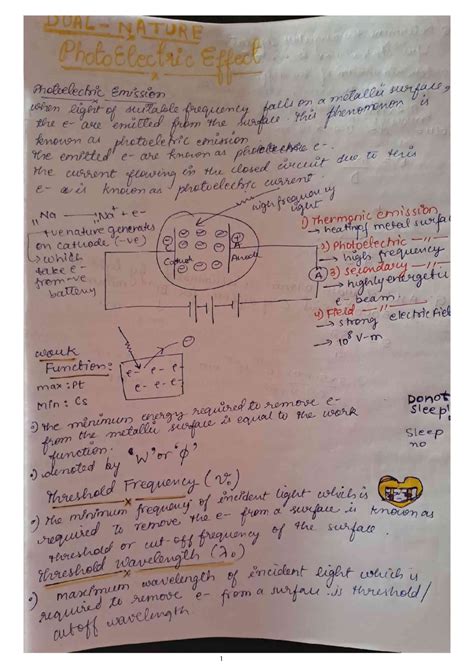 DUAL-NATURE
PhotoElectric Effect
Photoelectric Emission
when light of suitable frequency falls on a metallic surface,
the e- are emitted from the surface. this phenomenon is
known as photoelectric emission
the emitted e- are known as photoelectric e-.
the current flowing in the closed circuit due to this
e- is known as photoelectric current.
high frequency
light
Na → Na+ + e-
+ve nature generates
on cathode (-ve)
→ which
take e-
from -ve
battery
Cathod
Anode
A
1) Thermonic emission
→ heating of metal surface
2) Photoelectric —"—
→ high frequency
3) secondary —"—
→ highly energetic
e- beam.
4) Field —"—
→ strong electric field
→ 10⁸ V-m
work
Function:
max: Pt
Min: Cs
e- e- e-
e- e- e-
Donot
sleep!
Sleep
no
•) the minimum energy required to remove e-
from the metallic surface is equal to the work
function.
•) denoted by 'W' or 'φ'
Threshold Frequency (ν₀)
•) the minimum frequency of incident light which is
required to remove the e- from a surface is known as
threshold or cut-off frequency of the surface.
threshold wavelength (λ₀)
•) maximum wavelength of incident light which is
required to remove e- from a surface is threshold/
cutoff wavelength
1